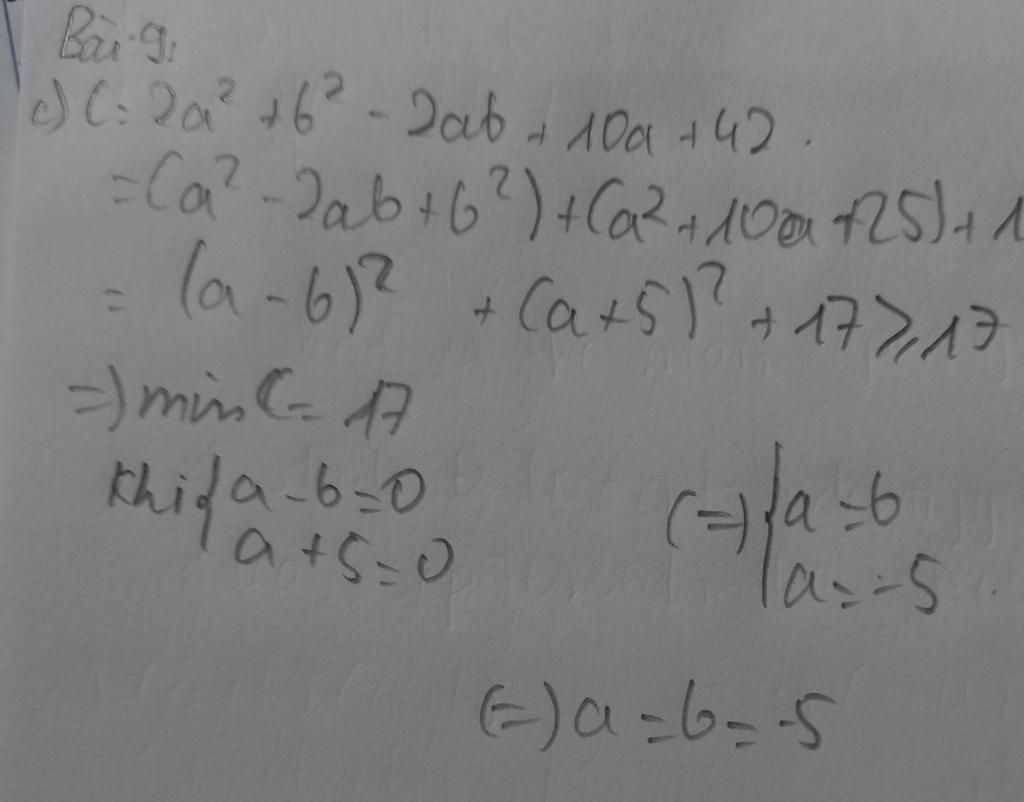 Bài 9,
c) C = 2a² + b² - 2ab + 10a + 42.
= (a² - 2ab + b²) + (a² + 10a + 25) + 1
= (a - b)² + (a + 5)² + 17 ⩾ 17
=) min C = 17
khi { a - b = 0 (=) { a = b
a + 5 = 0 a = -5
(=) a = b = -5